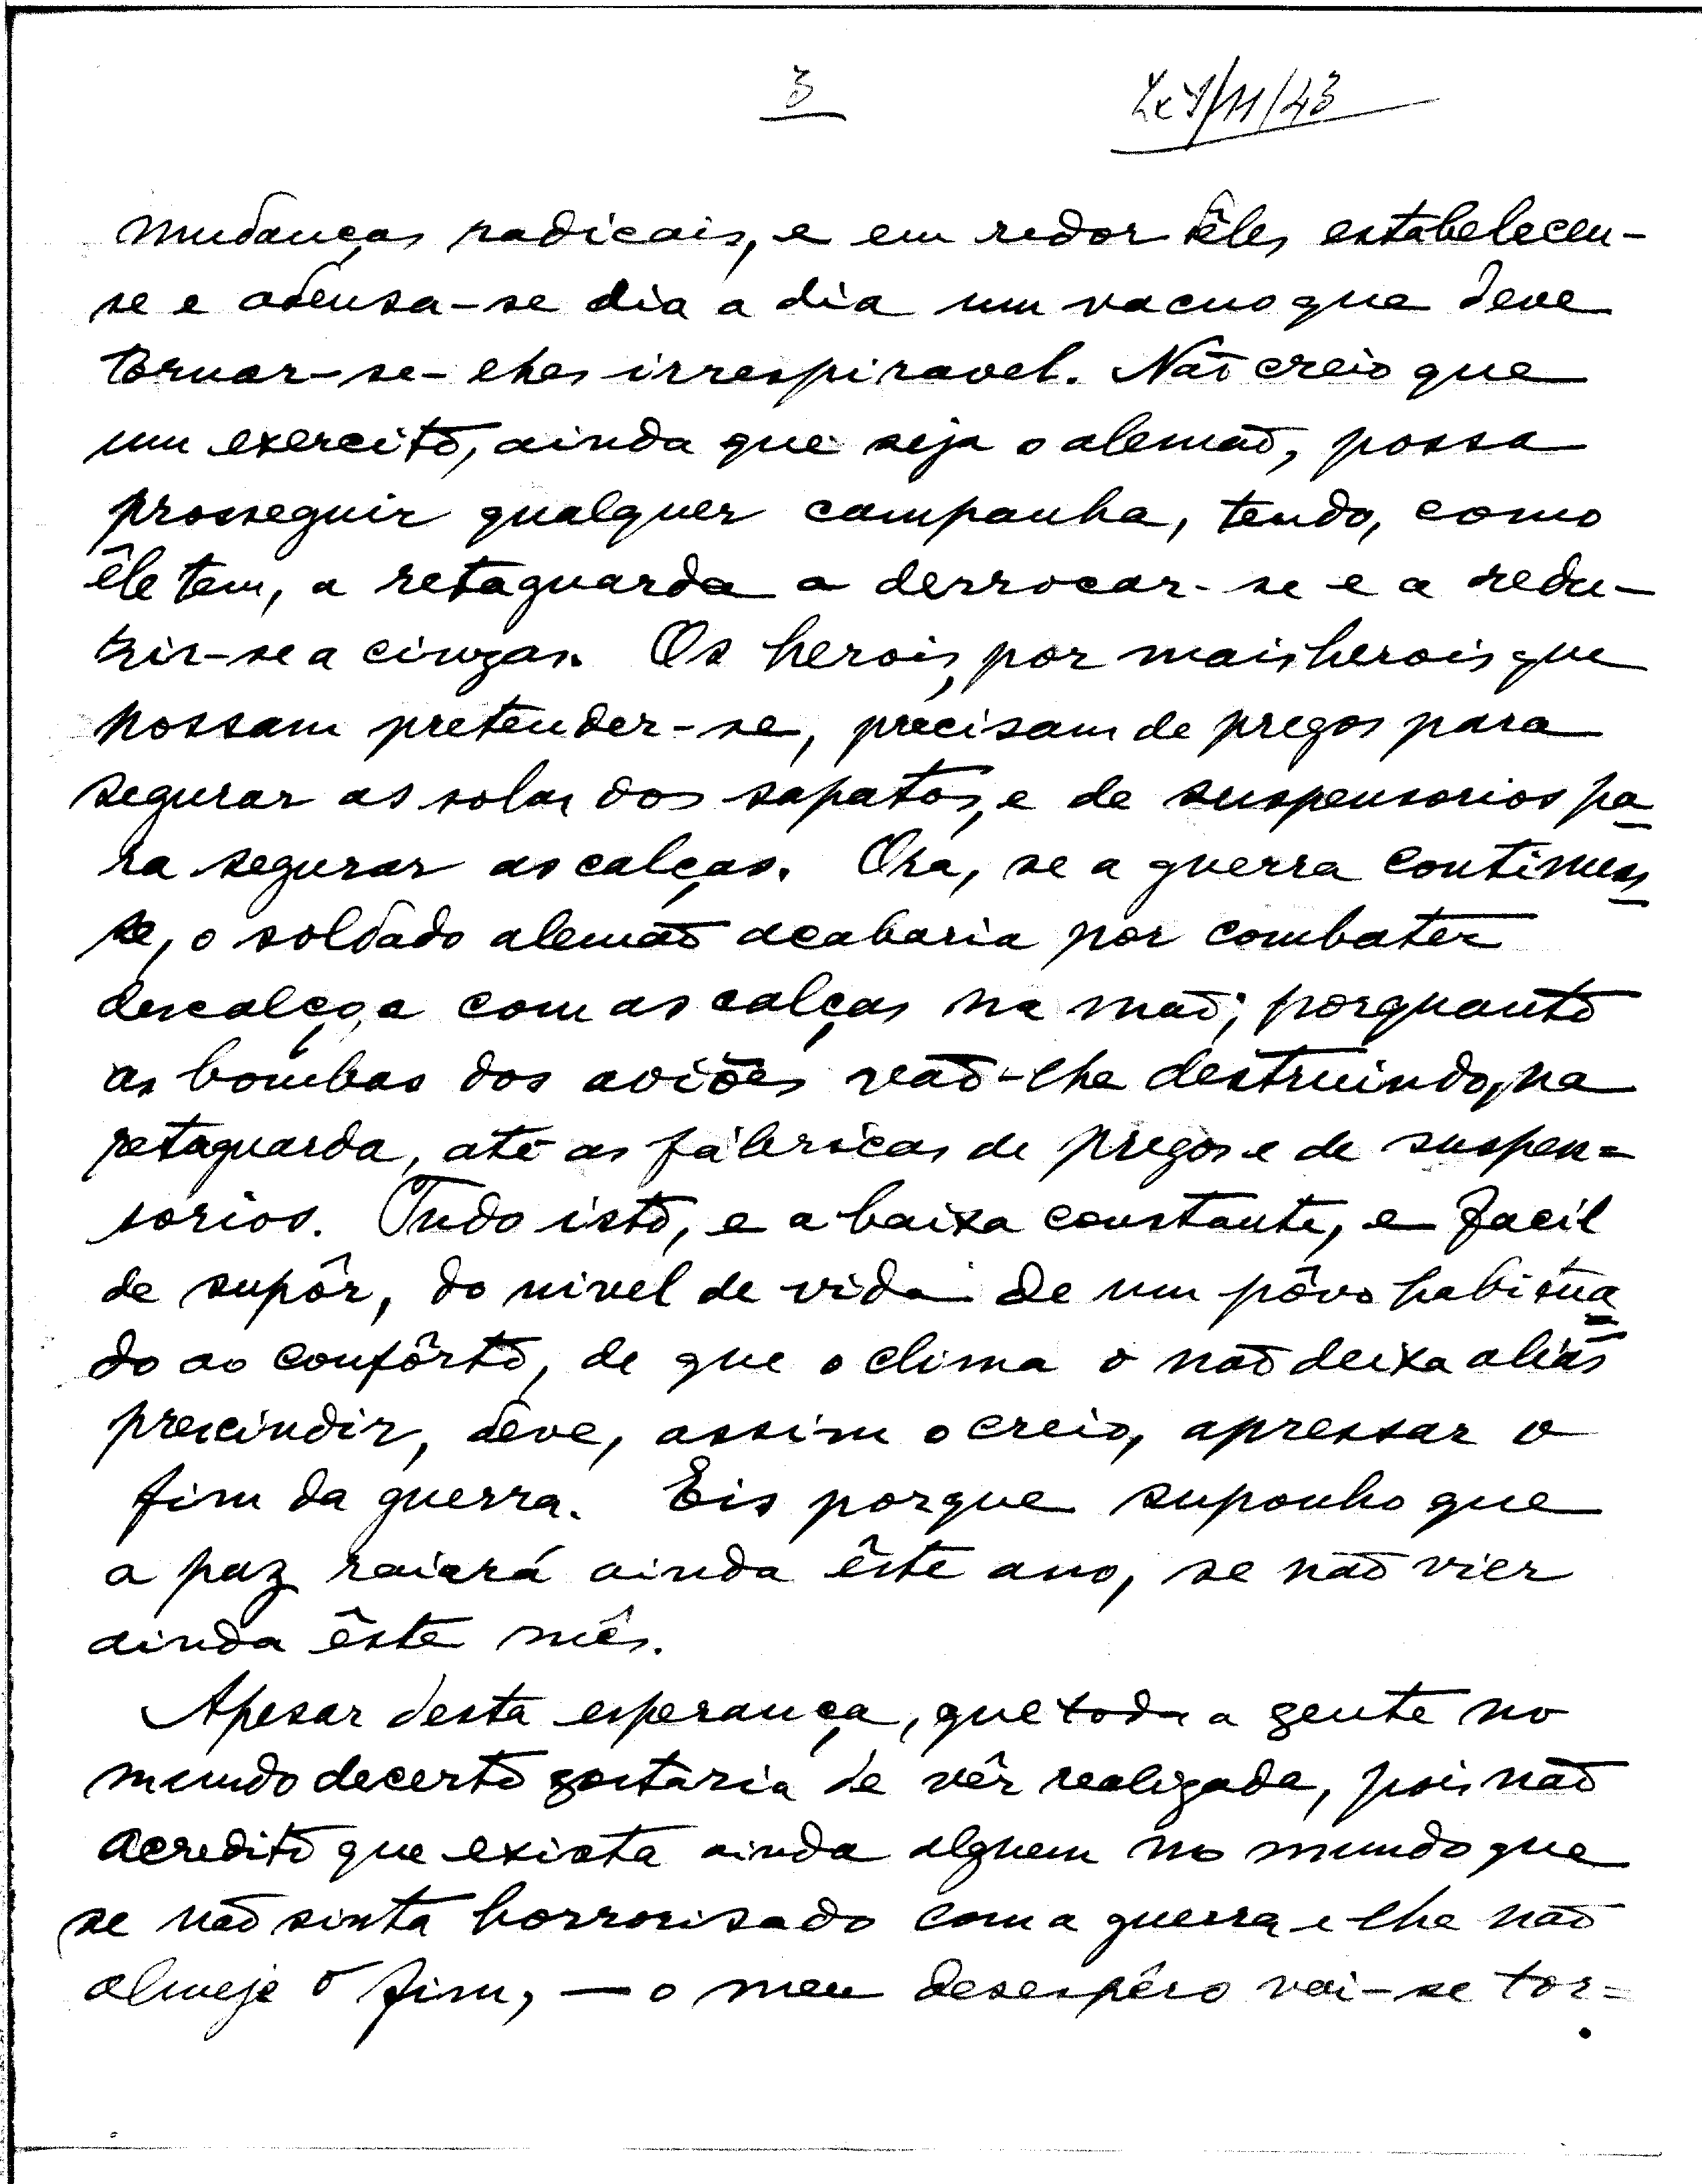 3
9/11/43
mudanças radicais, e em redor dêles estabeleceu-
se e adensa-se dia a dia um vacuo que deve
tornar-se-lhes irrespiravel. Não creio que
um exercito, ainda que seja o alemão, possa
prosseguir qualquer campanha, tendo, como
êle tem, a retaguarda a derrocar-se e a redu-
zir-se a cinzas. Os herois, por mais herois que
possam pretender-se, precisam de pregos para
segurar as solas dos sapatos, e de suspensorios pa
ra segurar as calças. Ora, se a guerra continuas
se, o soldado alemão acabaria por combater
descalço, e com as calças na mão; porquanto
as bombas dos aviões vão-lhe destruindo, na
retaguarda, até as fábricas de pregos e de suspen=
sorios. Tudo isto, e a baixa constante, e facil
de supôr, do nivel de vida de um pôvo habitua
do ao confôrto, de que o clima o não deixa aliás
prescindir, deve, assim o creio, apressar o
fim da guerra. Eis porque suponho que
a paz raiará ainda êste ano, se não vier
ainda êste mês.
Apesar desta esperança, que toda a gente no
mundo decerto gostaria de vêr realizada, pois não
acredito que exista ainda alguem no mundo que
se não sinta horrorisado com a guerra e lhe não
almeje o fim, — o meu desespêro vai-se tor=